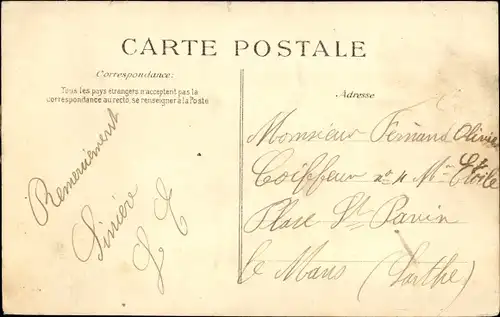 CARTE POSTALE
Correspondance:
Tous les pays étrangers n'acceptent pas la
correspondance au recto, se renseigner à la Poste
Remerciement
Sinière
L C
Adresse
Monsieur Fernand Olivier
Coiffeur n° 4 Mon Etoile
Place St Pavin
le Mans (Sarthe)